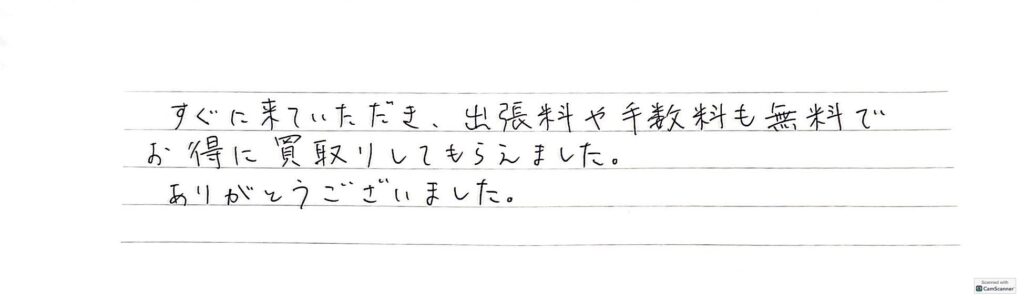 すぐに来ていただき、出張料や手数料も無料で
お得に買取りしてもらえました。
ありがとうございました。
Scanned with
CamScanner